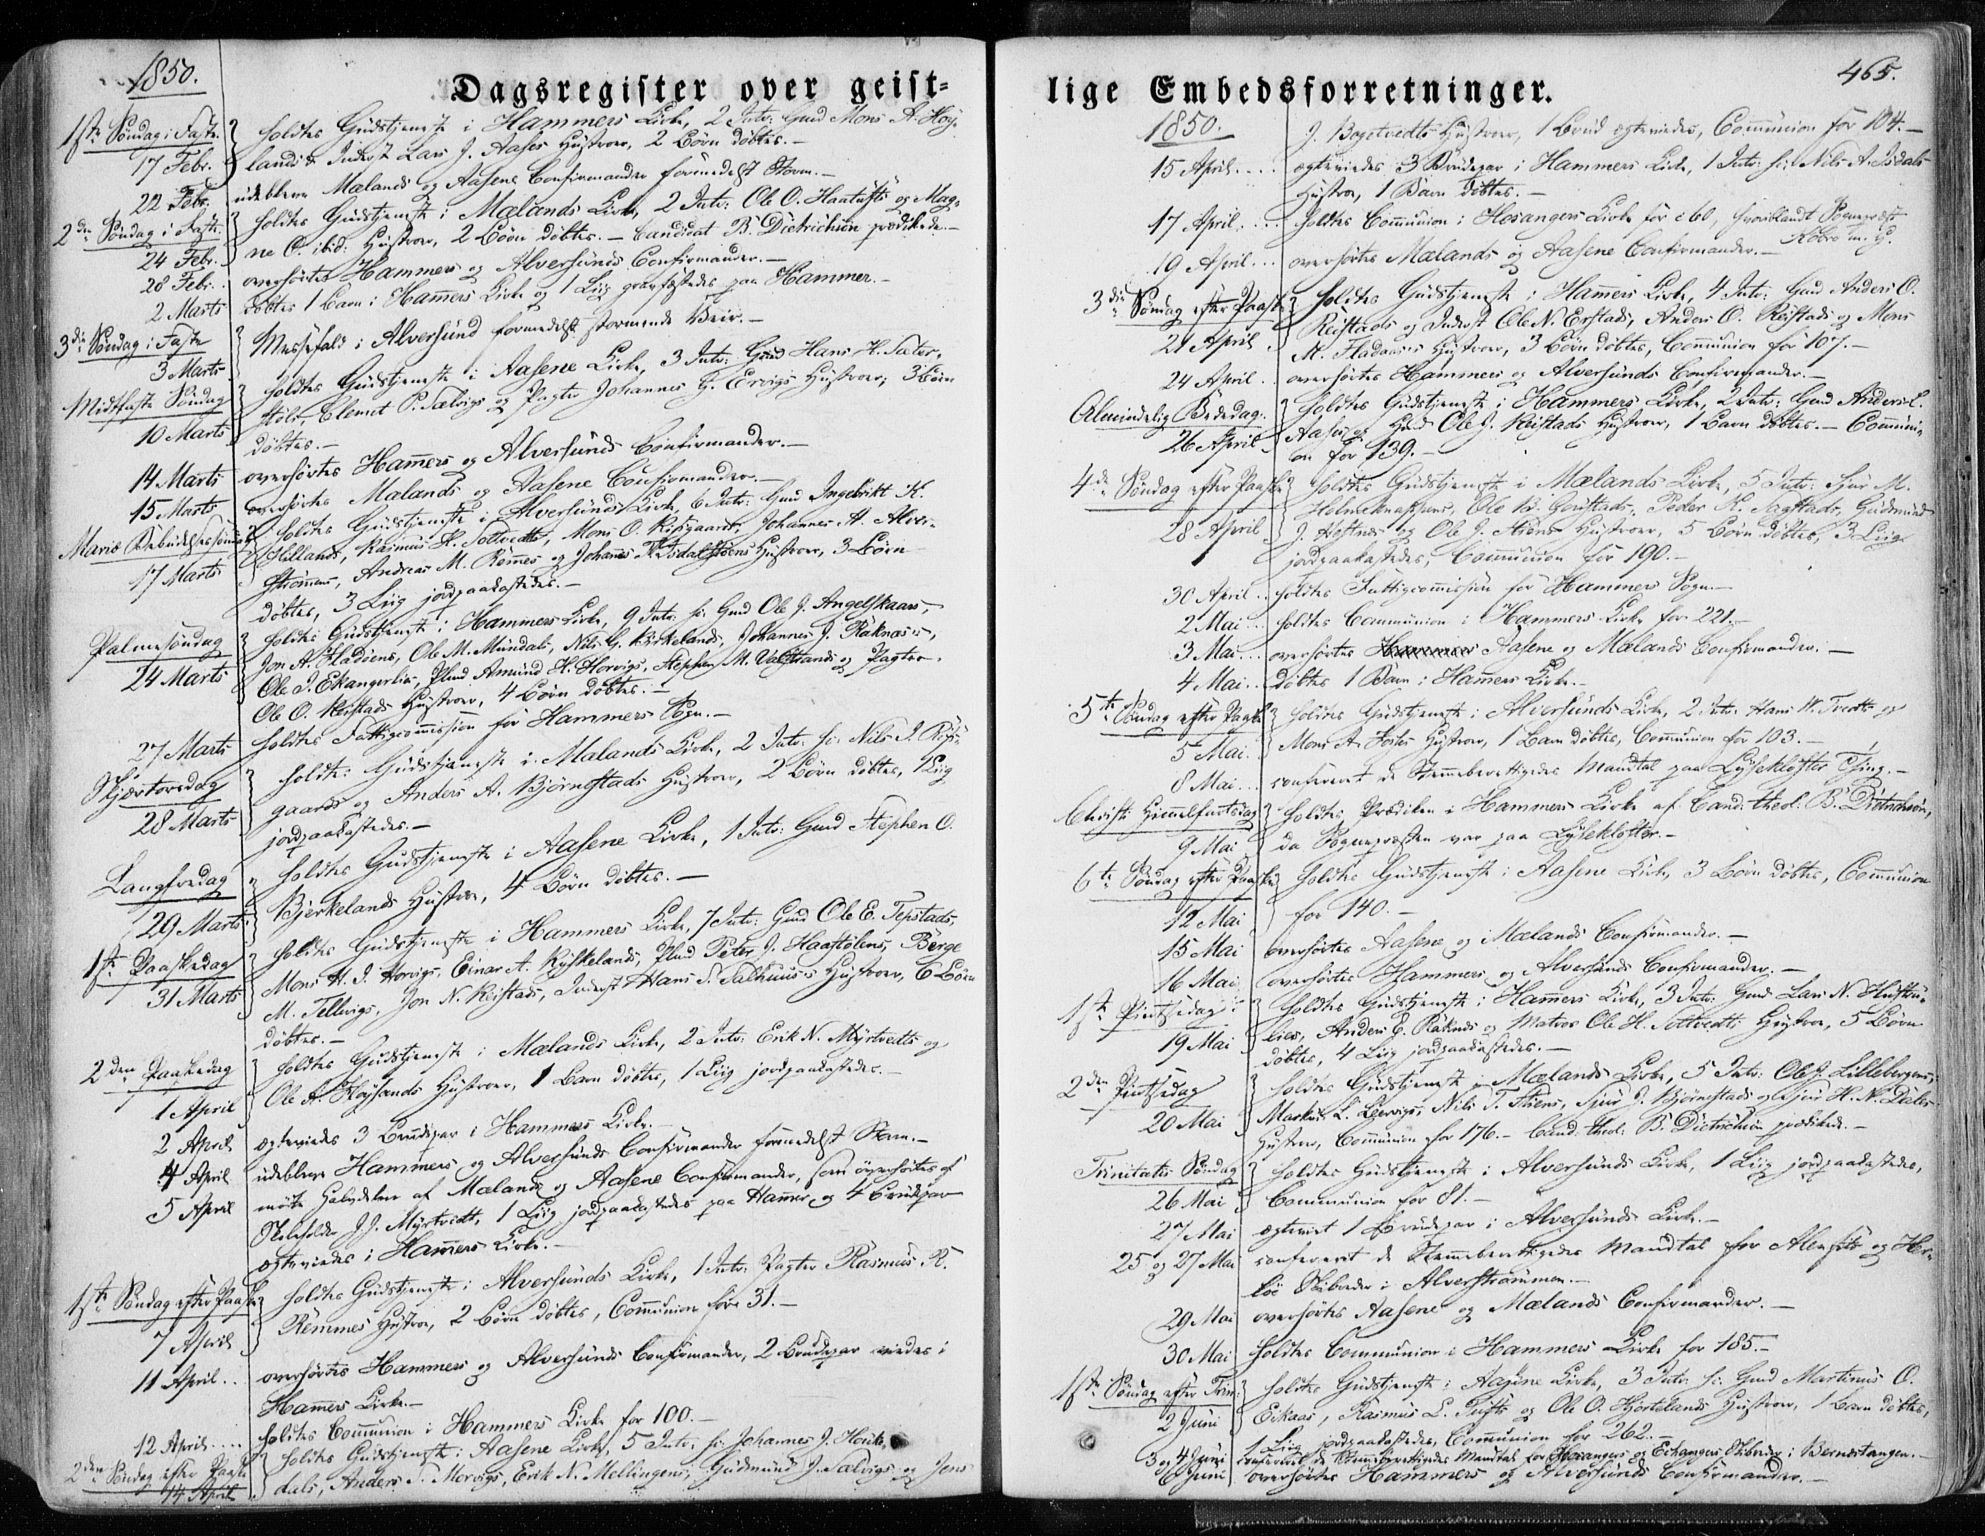 1850.
Dagsregister over geist-
1ste Søndag i Faste
17 Febr.
holdtes Gudstjeneste i Hammers Kirke, 2 Intr: Gmd Mons A. Høy-
lands & Inderst Lars J. Aases Hustruer, 2 Børn døbtes.-
22 Febr.
udebleve Mælands og Aasene Confirmander formedelst Storm.-
2den Søndag i Faste
24 Febr.
holdtes Gudstjeneste i Mælands Kirke, 2 Intr: Ole O. Haatufts og Mag-
ne O. ibid: Hustruer, 2 Børn døbtes.- Candidat B. Dietrichson prædikede.-
28 Febr.
overhørtes Hammers og Alversunds Confirmander.-
2 Marts
døbtes 1 Barn i Hamers Kirke og 1 Liig gravfæstedes paa Hammer.-
3die Søndag i Faste
3 Marts
Messefald i Alversund formedelst stormende Veir.-
Midtfaste Søndag
10 Marts
holdtes Gudstjeneste i Aasene Kirke, 3 Intr: Gmd Hans H. Sater-
støl, Clemet P. Sælvigs og Pagter Johannes G. Ervigs Hustruer, 3 Børn
døbtes.-
14 Marts
overhørtes Hamers og Alversunds Confirmander.-
15 Marts
overhørtes Mælands og Aasene Confirmander.-
Mariæ Bebudelsessøndag
17 Marts
holdtes Gudstjeneste i Alversunds Kirke, 6 Intr: Gmd Ingebrikt K.
Hillands, Rasmus H. Tottvedts, Mons O. Risgaards, Johannes A. Alver-
strømens, Andreas M. Rømmes og Johannes Hustruer, 3 Børn
døbtes, 3 Liig jordpaakastedes.-
Palmesøndag
24 Marts
holdtes Gudstjeneste i Hammers Kirke, 9 Intr: hr: Gmd Ole J. Angelskaars,
Jon A. Fladøens, Ole M. Mundals, Nils G. Birkelands, Johannes J. Raknæs's,
Ole J. Ekangerlie, Plmd Amund H. Horvigs, Stephen M. Valestrands og Pagter
Ole O. Reistads Hustruer, 4 Børn døbtes.-
27 Marts
holdtes Fattigcommission for Hammers Sogn.-
Skjærtorsdag
28 Marts
holdtes Gudstjeneste i Mælands Kirke, 2 Intr: hr: Nils J. Riis-
gaards og Anders A. Bjørnestads Hustruer, 2 Børn døbtes, 1 Liig
jordpaakastedes.-
Langfredag
29 Marts
holdtes Gudstjeneste i Aasene Kirke, 1 Intr: Gmd Stephen O.
Bjerkelands Hustrue, 4 Børn døbtes.-
1ste Paaskedag
31 Marts
holdtes Gudstjeneste i Hammers Kirke, 7 Intr: Gmd Ole E. Tepstads,
Mons H. J. Horvigs, Einar A. Ryskelands, Plmd Peter J. Haastølens, Børge
M. Tellevigs, Jon N. Reistads, Inderst Hans S. Salhuus's Hustruer, 6 Børn
døbtes.-
2den Paaskedag
1 April
holdtes Gudstjeneste i Mælands Kirke, 2 Intr: Erik N. Myrtvedts og
Ole A. Høylands Hustruer, 1 Barn døbtes, 1 Liig jordpaakastedes.-
2 April
ægteviedes 3 Brudepar i Hammers Kirke.-
4 April
udebleve Hammers og Alversunds Confirmander formedelst Storm.-
5 April
møtte Halvdelen af Mælands og Aasene Confirmander, som overhørtes af
Skoleholder J. J. Myrtvedt, 1 Liig jordpaakastedes paa Hamer og 4 Brudepar
ægteviedes i Hamers Kirke.-
1ste Søndag efter Paaske
7 April
holdtes Gudstjeneste i Alversunds Kirke, 1 Intr: Pagter Rasmus R.
Remmes Hustrue, 2 Børn døbtes, Comunion for 31.-
11 April..
overhørtes Hammers og Alversunds Confirmander, 2 Brudepar viedes i
Hamers Kirke.-
12 April....
holdtes Comunion i Hammers Kirke for 100.-
2den Søndag efter Paaske
14 April
holdtes Gudstjeneste i Aasene Kirke, 5 Intr: hr: Johannes J. Heile-
dals, Anders S. Mervigs, Erik N. Mellingens, Gudmund J. Sælvigs og Jens
lige Embedsforretninger.
465.
1850.
J. Bogetvedts Hustruer, 1 Brud ægteviedes, Communion for 104.-
15 April....
ægteviedes 3 Brudepar i Hammers Kirke, 1 Intr: hr: Nils A. Isdals
Hustrue, 1 Barn døbtes.-
17 April....
holdtes Communion i Hosangers Kirke for c 60, hvoriblandt Sognepræst
Kobro m. fl.
19 April...
overhørtes Mælands og Aasene Confirmander.-
3die Søndag efter Paaske
21 April
holdtes Gudstjeneste i Hamers Kirke, 4 Intr: Gmd Anders O.
Reistads og Inderst Ole N. Erstads, Anders O. Reistads og Mons
K. Fladøens Hustruer, 3 Børn døbtes, Comunion for 107.-
24 April..
overhørtes Hammers og Alversunds Confirmander.-
Almindelig Bededag.
26 April
holdtes Gudstjeneste i Hammers Kirke, 2 Intr: Gmd Anders L.
Aases og Hmd Ole J. Reistads Hustruer, 1 Barn døbtes.- Communi-
on for 139.-
4de Søndag efter Paaske
28 April
holdtes Gudstjeneste i Mælands Kirke, 5 Intr: Sjur M.
Helmiknappens, Ole B. Gustads, Peder K. Sagstads, Gudmund
J. Hoftnes og Ole J. Hidens Hustruer, 5 Børn døbtes, 3 Liig
jordpaakastedes, Communion for 190.-
30 April..
holdtes Fattigcommission for Hammers Sogn.-
2 Mai...
holdtes Communion i Hammers Kirke for 221.-
3 Mai...
overhørtes Hammers Aasene og Mælands Confirmander.-
4 Mai..
døbtes 1 Barn i Hamers Kirke.-
5te Søndag efter Paaske
5 Mai.
holdtes Gudstjeneste i Alversunds Kirke, 2 Intr: Hans W. Tvedts og
Mons A. Fosses Hustruer, 1 Barn døbtes, Comunion for 103.-
8 Mai...
confereret de Stemmeberettigedes Mandtal paa Lyseklosters Thing.-
Christi Himmelfartsdag
9 Mai
holdtes Prædiken i Hammers Kirke af Cand: theol: B. Dietrichson,
da Sognepræsten var paa Lysekloster.-
6te Søndag efter Paaske
12 Mai
holdtes Gudstjeneste i Aasene Kirke, 3 Børn døbtes, Comunion
for 140.-
15 Mai
overhørtes Aasene og Mælands Confirmander.-
16 Mai
overhørtes Hammers og Alversunds Confirmander.-
1ste Pintsedag
19 Mai
holdtes Gudstjeneste i Hamers Kirke, 3 Intr: Gmd Lars N. Husdu-
lies, Anders E. Raknes og Matros Ole H. Tottvedts Hustruer, 5 Børn
døbtes, 4 Liig jordpaakastedes.-
2den Pintsedag
20 Mai
holdtes Gudstjeneste i Mælands Kirke, 5 Intr: Ole J. Lillebergens,
Markus L. Leervigs, Nils T. Stiens, Sjur J. Bjørnestads og Sjur H. N. Dales
Hustruer, Comunion for 176.- Cand: theol: B. Dietrichson prædikede.-
Trinitatis Søndag
26 Mai
holdtes Gudstjeneste i Alversunds Kirke, 1 Liig jordpaakastedes,
Communion for 81.-
27 Mai
ægteviet 1 Brudepar i Alversunds Kirke.-
25 og 27 Mai
confereret de Stemmeberettigedes Mandtal for Alenfits og Her-
løe Skibreder i Alverstrømmen.-
29 Mai
overhørtes Aasene og Mælands Confirmander.-
30 Mai
holdtes Communion i Hammers Kirke for 185.-
1ste Søndag efter Trin:
2 Juni
holdtes Gudstjeneste i Aasene Kirke, 3 Intr: hr: Gmd Martinus O.
Eikaas, Rasmus L. Tufts og Ole O. Hjortelands Hustruer, 1 Barn døbtes,
1 Liig jordpaakastedes, Comunion for 262.-
3 og 4 Juni
confereret de Stemmeberettigedes Mandtal for Hosangers og Echangers Skibreder i Bernestangen.-
6 Juni
overhørtes Hammers og Alversunds Confirmander.-